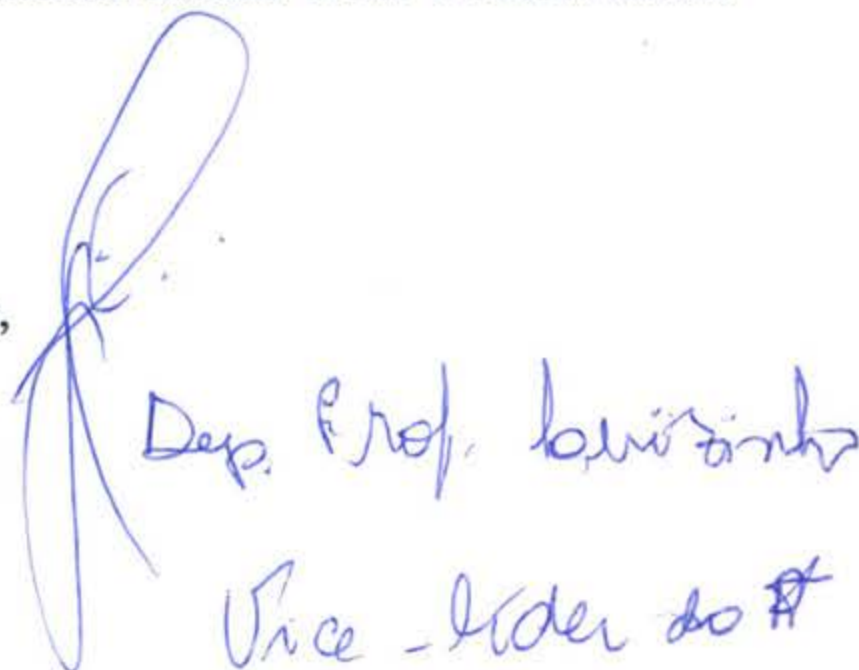 ,
Dep. Prof. Luizinho
Vice-líder do PT